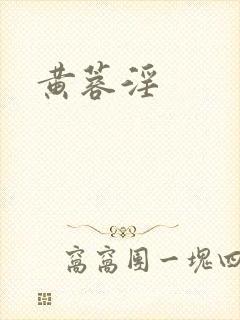 黄蓉淫
窝窝团一块四